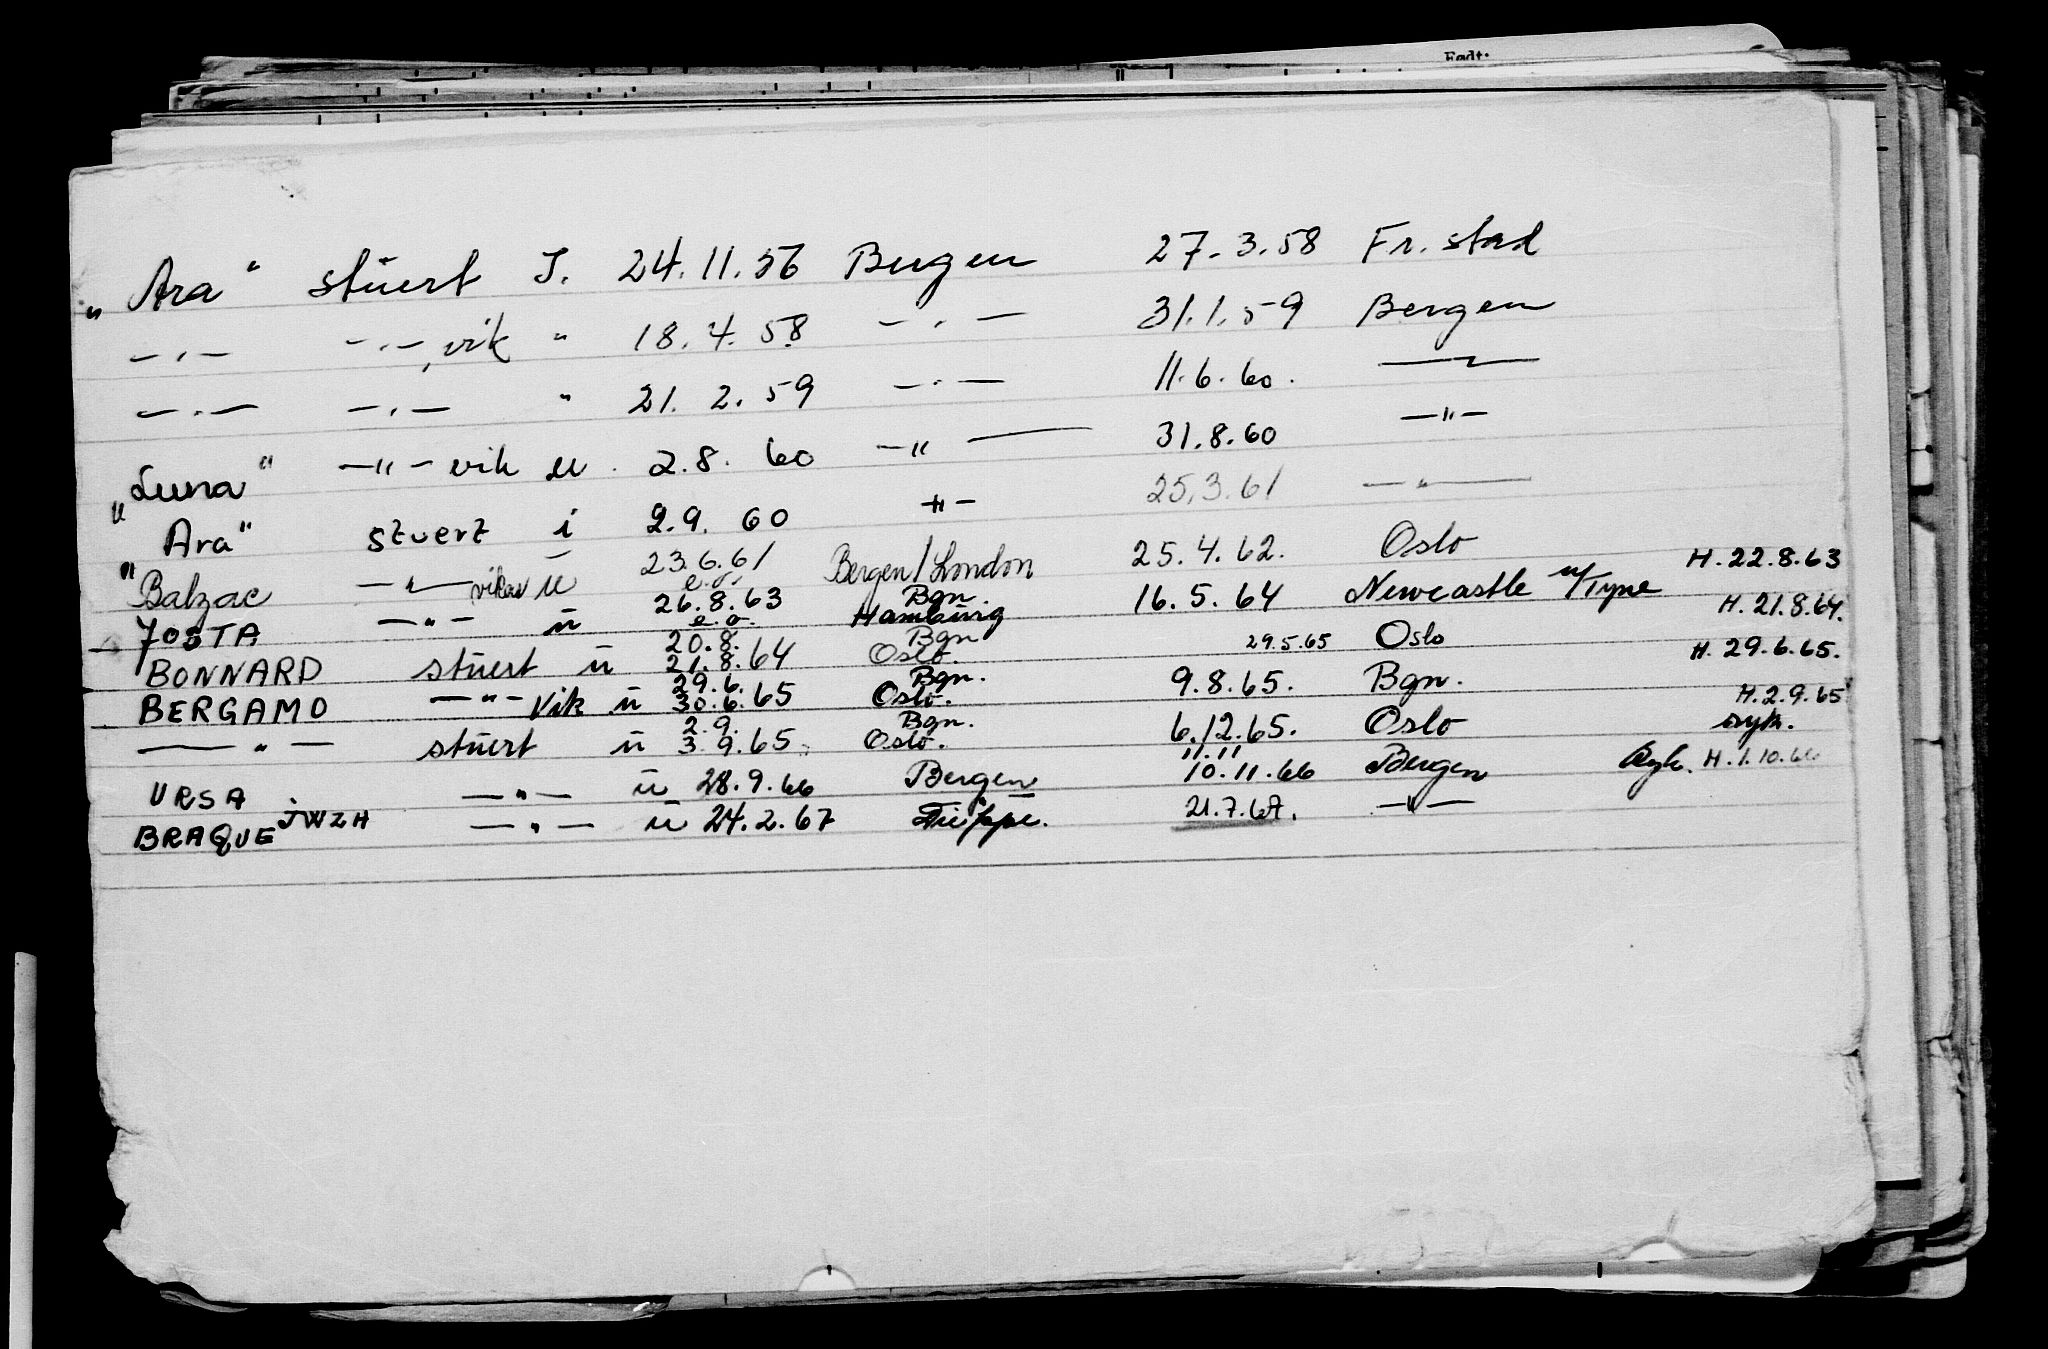 Født:
„Ara" stuert I. 24.11.56 Bergen 27.3.58 Fr.stad
—"— —"—, vik " 18.4.58 —"— 31.1.59 Bergen
—"— —"— " 21.2.59 —"— 11.6.60. —"—
„Luna" —"— vik u. 2.8.60 —"— 31.8.60 —"—
„Ara" stuert i 2.9.60 —"— 25.3.61 —"—
„Balzac —"— vikar u 23.6.61 Bergen/London 25.4.62. Oslo H.22.8.63
e.o. Bgn.
JOSTA —"— u 26.8.63 Hamburg 16.5.64 Newcastle u/Tyne H.21.8.64.
e.o.
20.8. Bgn
BONNARD stuert u 21.8.64 Oslo. 29.5.65 Oslo H. 29.6.65.
29.6. Bgn.
BERGAMO —"— Vik u 30.6.65 Oslo. 9.8.65. Bgn. H.2.9.65
2.9. Bgn.
—"— stuert u 3.9.65. Oslo. 6.12.65. Oslo syk.
11.11
URSA —"— u 28.9.66 Bergen 10.11.66 Bergen Syk. H.1.10.66
BRAQUE JWZH —"— u 24.2.67 Dieppe. 21.7.67. —"—